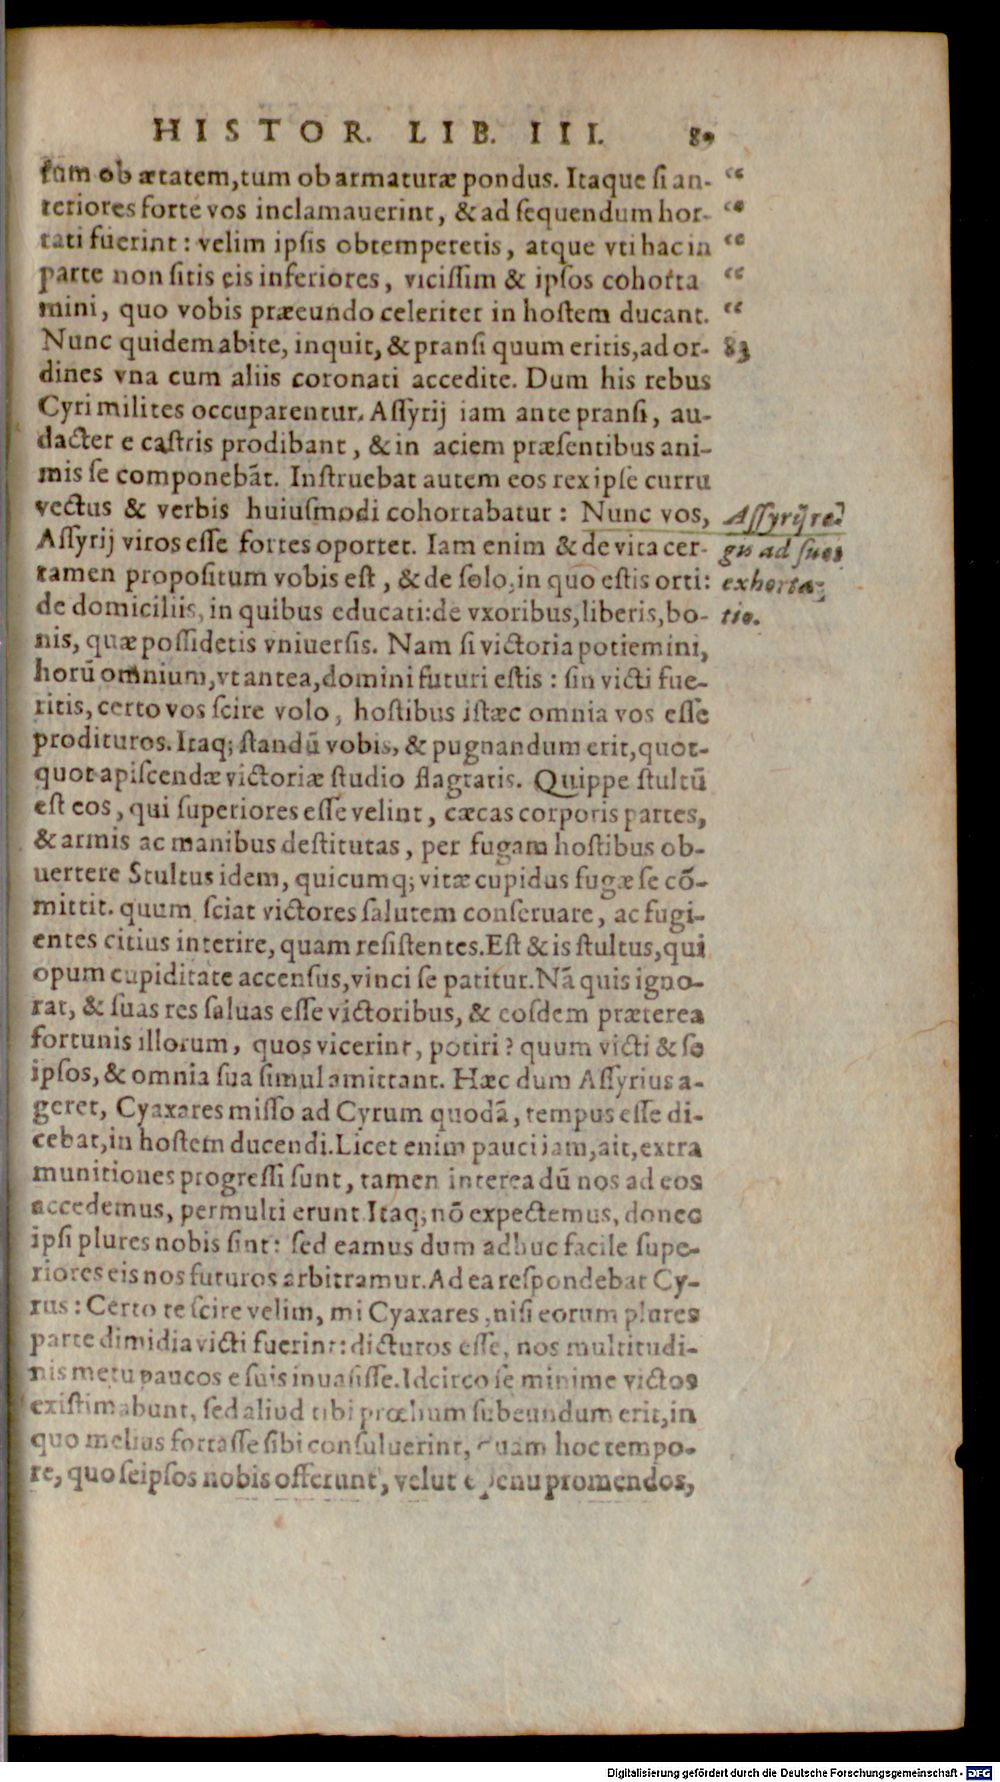 HISTOR. LIB. III. 89
tum ob ætatem, tum ob armaturæ pondus. Itaque si an- “
teriores forte vos inclamauerint, & ad sequendum hor- “
tati fuerint: velim ipsis obtemperetis, atque vti hac in “
parte non sitis eis inferiores, vicissim & ipsos cohorta “
mini, quo vobis præeundo celeriter in hostem ducant. “
Nunc quidem abite, inquit, & pransi quum eritis, ad or- 83
dines vna cum aliis coronati accedite. Dum his rebus
Cyri milites occuparentur, Assyrij iam ante pransi, au-
dacter e castris prodibant, & in aciem præsentibus ani-
mis se componebāt. Instruebat autem eos rex ipse curru
vectus & verbis huiusmodi cohortabatur: Nunc vos, Assyrij re-
Assyrij viros esse fortes oportet. Iam enim & de vita cer- gis ad suos
tamen propositum vobis est, & de solo, in quo estis orti: exhorta-
de domiciliis, in quibus educati: de vxoribus, liberis, bo- tio.
nis, quæ possidetis vniuersis. Nam si victoria potiemini,
horū omnium, vt antea, domini futuri estis: sin victi fue-
ritis, certo vos scire volo, hostibus istæc omnia vos esse
prodituros. Itaq; standū vobis, & pugnandum erit, quot-
quot apiscendæ victoriæ studio flagratis. Quippe stultū
est eos, qui superiores esse velint, cæcas corporis partes,
& armis ac manibus destitutas, per fugam hostibus ob-
uertere Stultus idem, quicumq; vitæ cupidus fugæ se cō-
mittit. quum sciat victores salutem conseruare, ac fugi-
entes citius interire, quam resistentes. Est & is stultus, qui
opum cupiditate accensus, vinci se patitur. Nā quis igno-
rat, & suas res saluas esse victoribus, & eosdem præterea
fortunis illorum, quos vicerint, potiri? quum victi & se
ipsos, & omnia sua simul amittant. Hæc dum Assyrius a-
geret, Cyaxares misso ad Cyrum quodā, tempus esse di-
cebat, in hostem ducendi. Licet enim pauci iam, ait, extra
munitiones progressi sunt, tamen interea dū nos ad eos
accedemus, permulti erunt Itaq; nō expectemus, donec
ipsi plures nobis sint: sed eamus dum adhuc facile supe-
riores eis nos futuros arbitramur. Ad ea respondebat Cy-
rus: Certo te scire velim, mi Cyaxares, nisi eorum plures
parte dimidia victi fuerint: dicturos esse, nos multitudi-
nis metu paucos e suis inuasisse. Idcirco se minime victos
existimabunt, sed aliud tibi prœlium subeundum erit, in
quo melius fortasse sibi consuluerint, quam hoc tempo-
re, quo seipsos nobis offerunt, velut e penu promendos,
Digitalisierung gefördert durch die Deutsche Forschungsgemeinschaft - DFG